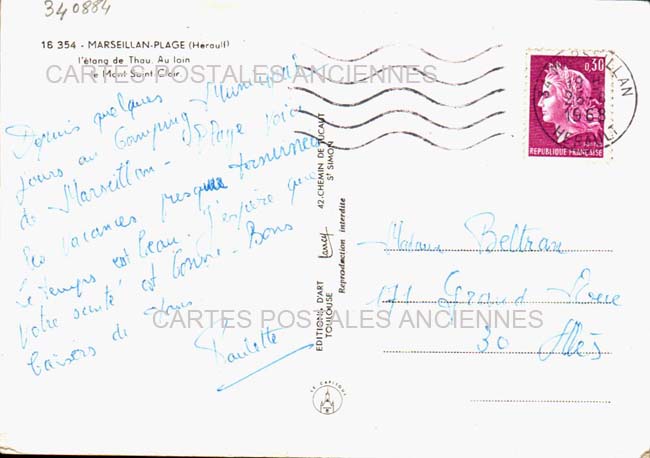 340884
16 354 - MARSEILLAN-PLAGE (Herault)
l'étang de Thau. Au loin
le Mont Saint Clair
CARTES POSTALES ANCIENNES
Depuis quelques
jours au Camping Municipal
de Marseillan - Plage voici
les vacances presque terminées
Le temps est beau. J'espère que
votre santé est bonne. Bons
baisers de
Paulette
EDITIONS D'ART
TOULOUSE
42, CHEMIN DE
St SIMON
Reproduction interdite
LE CAPITOUL
0,30
REPUBLIQUE FRANÇAISE
MARSEILLAN
1968
HERAULT
Madame Beltran
171 Grand Rue
30 Alès
CARTES POSTALES ANCIENNES